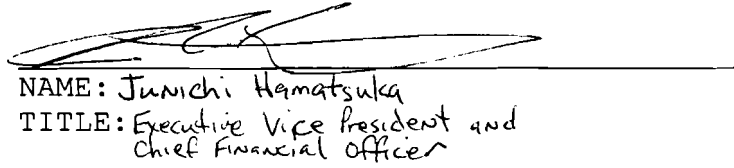 NAME: Junichi Hamatsuka
TITLE: Executive Vice President and
Chief Financial Officer